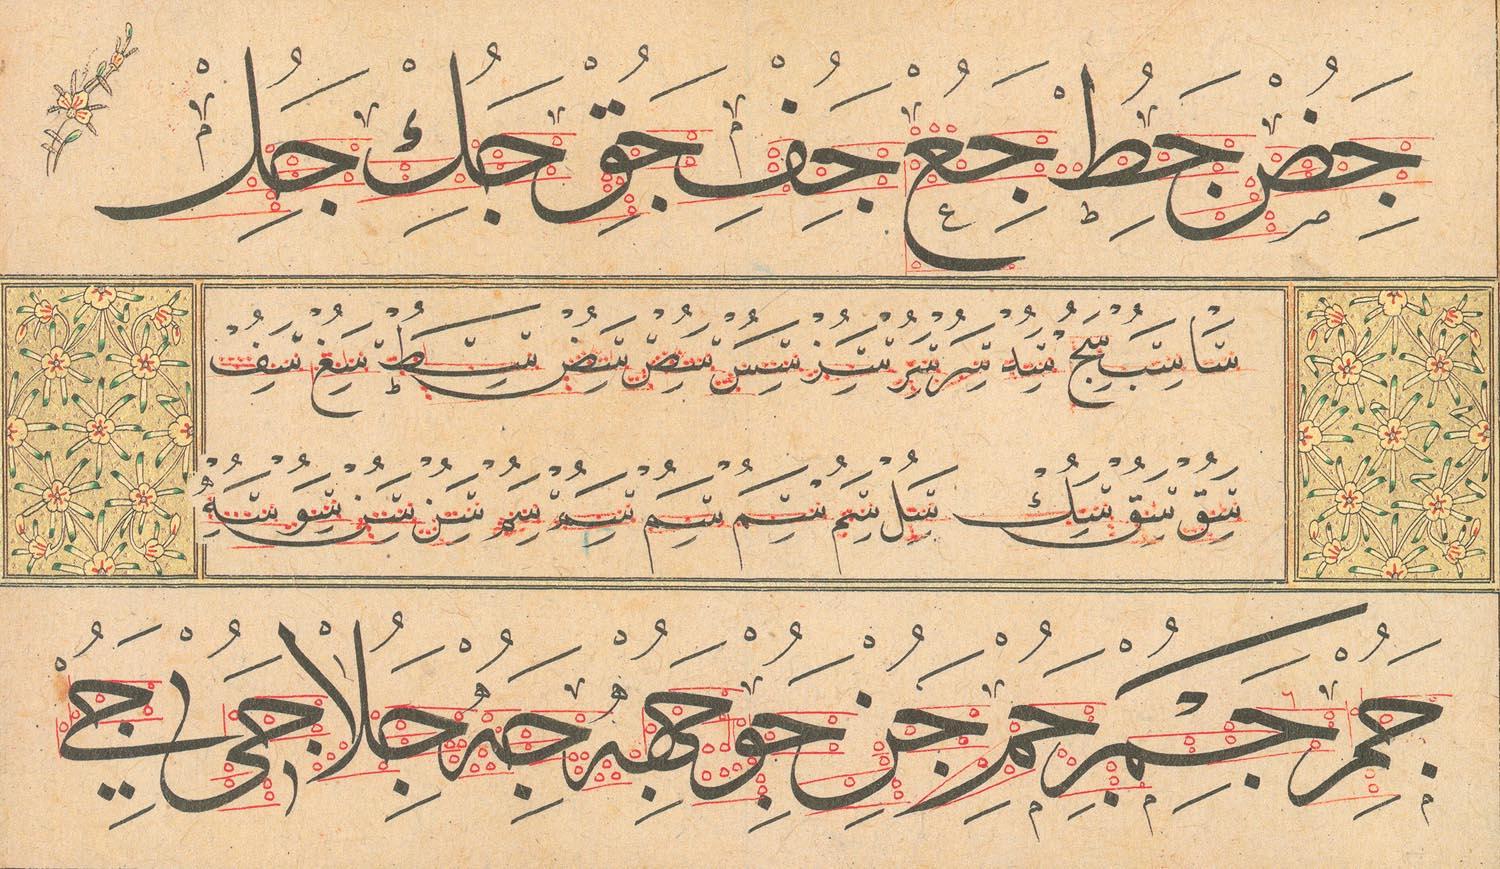 جض جط جع جف جق جك جل
سا سب سج سر سر سس سص سض سط سغ سف
سق سق سك سل سم سم سم سم سم سن سن سو سه
جم جم جم جن جو جه جه جلا جى جي